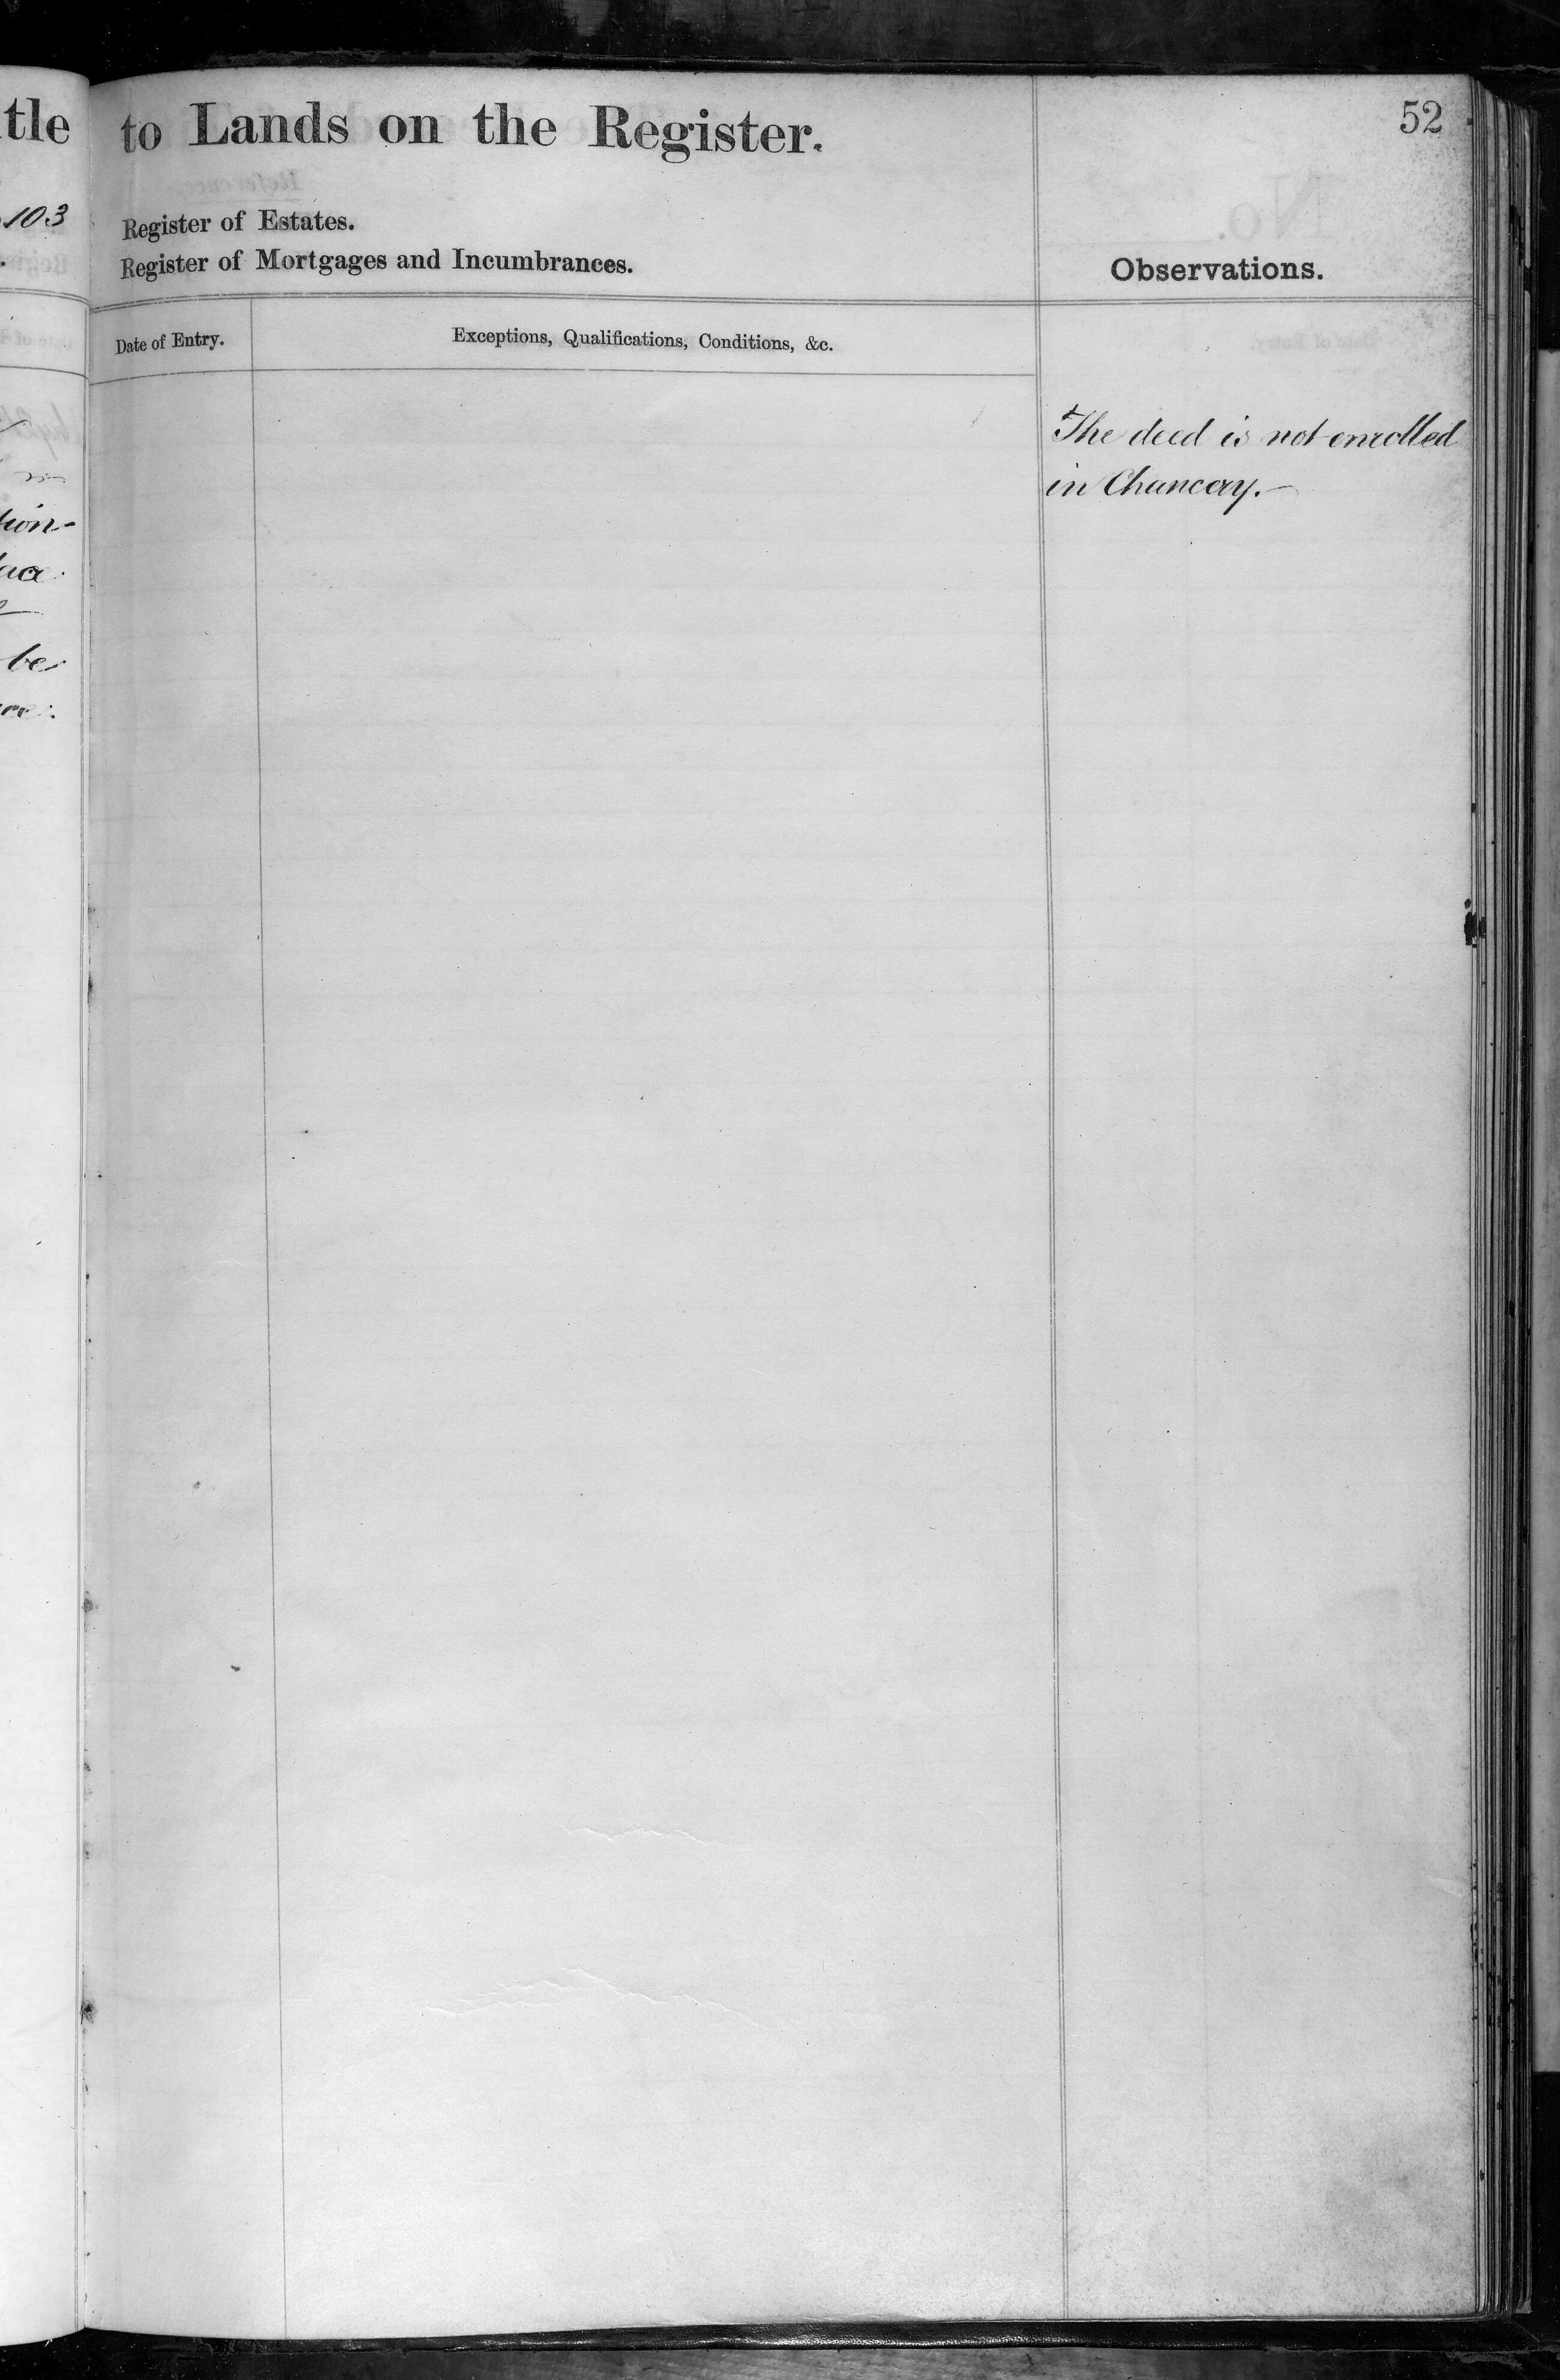 tle
103
tion-
be
to Lands on the Register.
52
Register of Estates.
Register of Mortgages and Incumbrances.
Observations.
Date of Entry.
Exceptions, Qualifications, Conditions, &c.
The deed is not enrolled
in Chancery.-